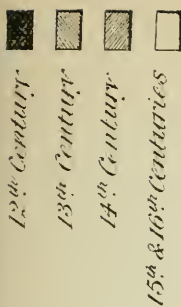 12th. Century
13th. Century
14th. Century
15th & 16th Centuries